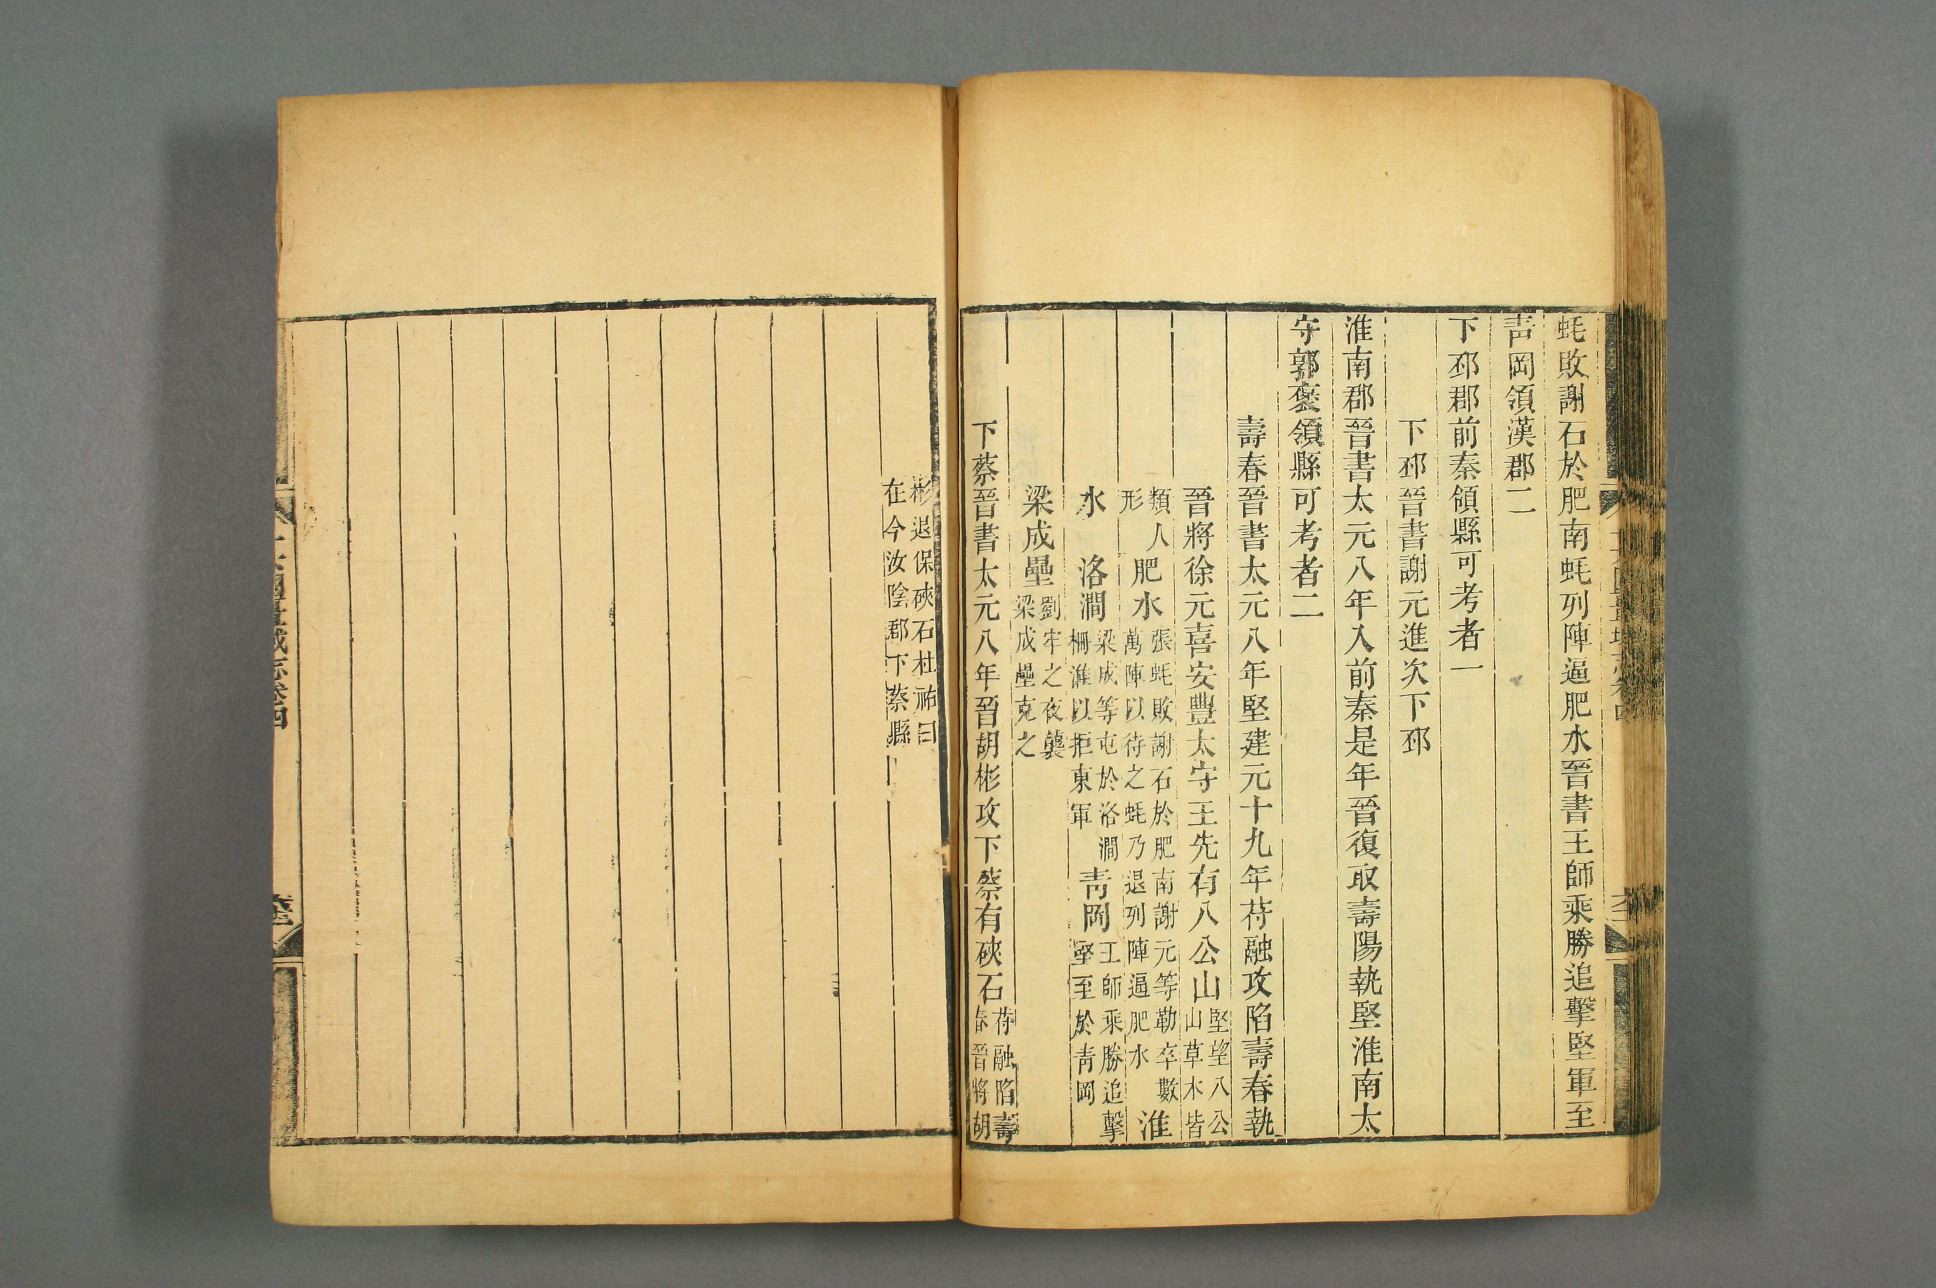 蚝敗謝石於肥南蚝列陣逼肥水晉書王師乘勝追擊堅軍至
靑岡領漢郡二
下邳郡前秦領縣可考者一
下邳晉書謝元進次下邳
淮南郡晉書太元八年入前秦是年晉復取壽陽執堅淮南太
守郭褒領縣可考者二
壽春晉書太元八年堅建元十九年苻融攻陷壽春執
晉將徐元喜安豐太守王先有八公山堅望八公
山草木皆
類人
形
肥水張蚝敗謝石於肥南謝元等勒卒數
萬陣以待之蚝乃退列陣逼肥水
淮
水
洛澗梁成等屯於洛澗
柵淮以拒東軍
靑岡王師乘勝追擊
堅至於靑岡
梁成壘劉牢之夜襲
梁成壘克之
下蔡晉書太元八年晉胡彬攻下蔡有硤石苻融陷壽
春晉將胡
彬退保硤石杜祐曰
在今汝陰郡下蔡縣
十六國疆域志卷四